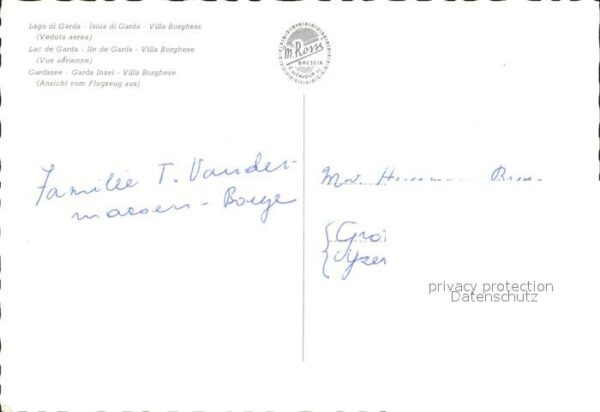 Lago di Garda - Isola di Garda - Villa Borghese
(Veduta aerea)
Lac de Garda - Ile de Garda - Villa Borghese
(Vue aérienne)
Gardasee - Garda Insel - Villa Borghese
(Ansicht vom Flugzeug aus)
M. Rossi
BRESCIA
Familie T. Vander-
maesen - Boeye
privacy protection
Datenschutz